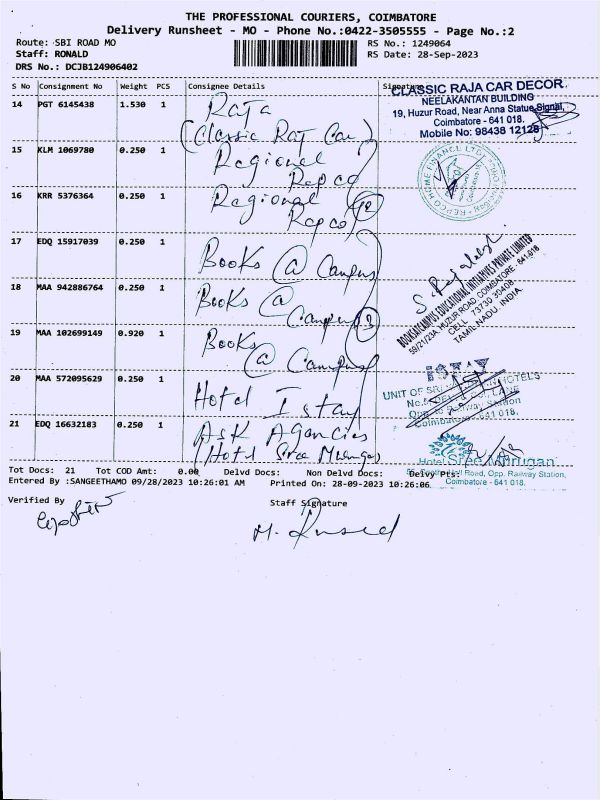 THE PROFESSIONAL COURIERS, COIMBATORE
Delivery Runsheet - MO - Phone No.:0422-3505555 - Page No.:2
Route: SBI ROAD MO
RS No.: 1249064
Staff: RONALD
RS Date: 28-Sep-2023
DRS No.: DCJB124906402
S No Consignment No Weight PCS Consignee Details Signature
14 PGT 6145438 1.530 1 Raja
(Classic Raj Car)
CLASSIC RAJA CAR DECOR
NEELAKANTAN BUILDING
19, Huzur Road, Near Anna Statue Signal,
Coimbatore - 641 018.
Mobile No: 98438 12128
15 KLM 1069780 0.250 1 Regional
Repco
REPCO HOME FINANCE LTD
16 KRR 5376364 0.250 1 Regional
Repco (2)
17 EDQ 15917039 0.250 1 Books @ Campus
18 MAA 942886764 0.250 1 Books @
Campus (3)
BOOKSATCAMPUS EDUCATIONAL INITIATIVES PRIVATE LIMITED
59/21/23A, HUZUR ROAD, COIMBATORE - 641-018
CELL: 73730 30408
TAMIL NADU, INDIA.
19 MAA 102699149 0.920 1 Books
@ Campus
20 MAA 572095629 0.250 1 Hotel Istay
UNIT OF SRI HOTELS
LANE
Railway Station
Coimbatore - 641 018.
21 EDQ 16632183 0.250 1 Ask Agancies
(Hotel Sree Murugan
Hotel Sree Murugan
Road, Opp. Railway Station,
Coimbatore - 641 018.
Tot Docs: 21 Tot COD Amt: 0.00 Delvd Docs: Non Delvd Docs: Delvy Pts:
Entered By :SANGEETHAMO 09/28/2023 10:26:01 AM Printed On: 28-09-2023 10:26:06
Verified By
Staff Signature